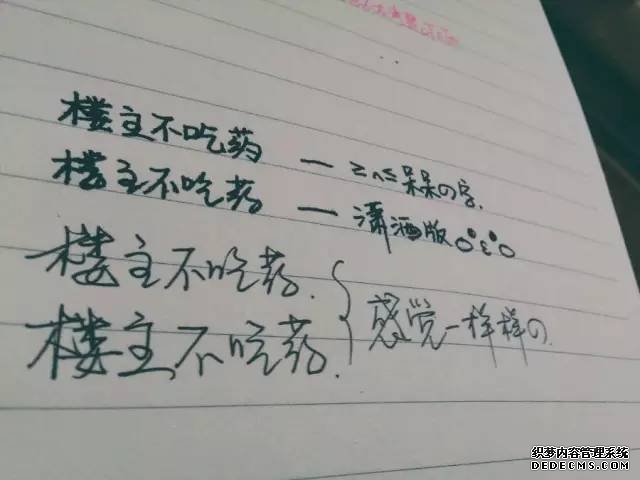 楼主不吃药 — ≥n≤呆呆の字.
楼主不吃药 — 潇洒版 oºεºo
楼主不吃药.
楼主不吃药.
感觉一样样の
织梦内容管理系统
DEDECMS.COM